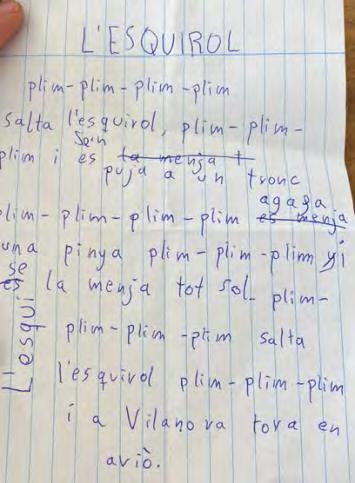 L'ESQUIROL
plim-plim-plim-plim
salta l'esquirol, plim-plim-
se'n
plim i es la menja t
puja a un tronc
agaga
plim-plim-plim-plim es menja
una pinya plim-plim-plim yi
se
es la menja tot sol. plim-
plim-plim-plim salta
l'esquirol plim-plim-plim
i a Vilanova tova en
aviò.
L'esqui